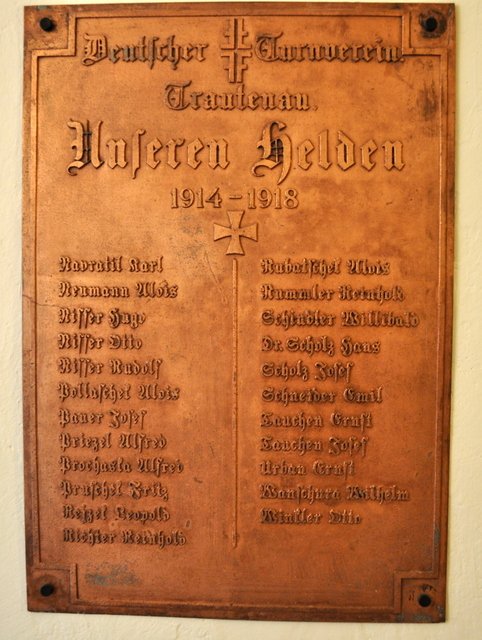 Deutscher Turnverein
Trautenau.
Unseren Helden
1914-1918
Navratil Karl
Neumann Alois
Nisser Hugo
Nisser Otto
Nisser Rudolf
Pollaschek Alois
Pauer Josef
Priezel Alfred
Prochaska Alfred
Pruschek Fritz
Reszel Leopold
Richter Reinhold
Rubatschek Alois
Rummler Reinhold
Schindler Willibald
Dr. Scholz Hans
Scholz Josef
Schneider Emil
Tauchen Ernst
Tauchen Josef
Urban Ernst
Wanschura Wilhelm
Winkler Otto